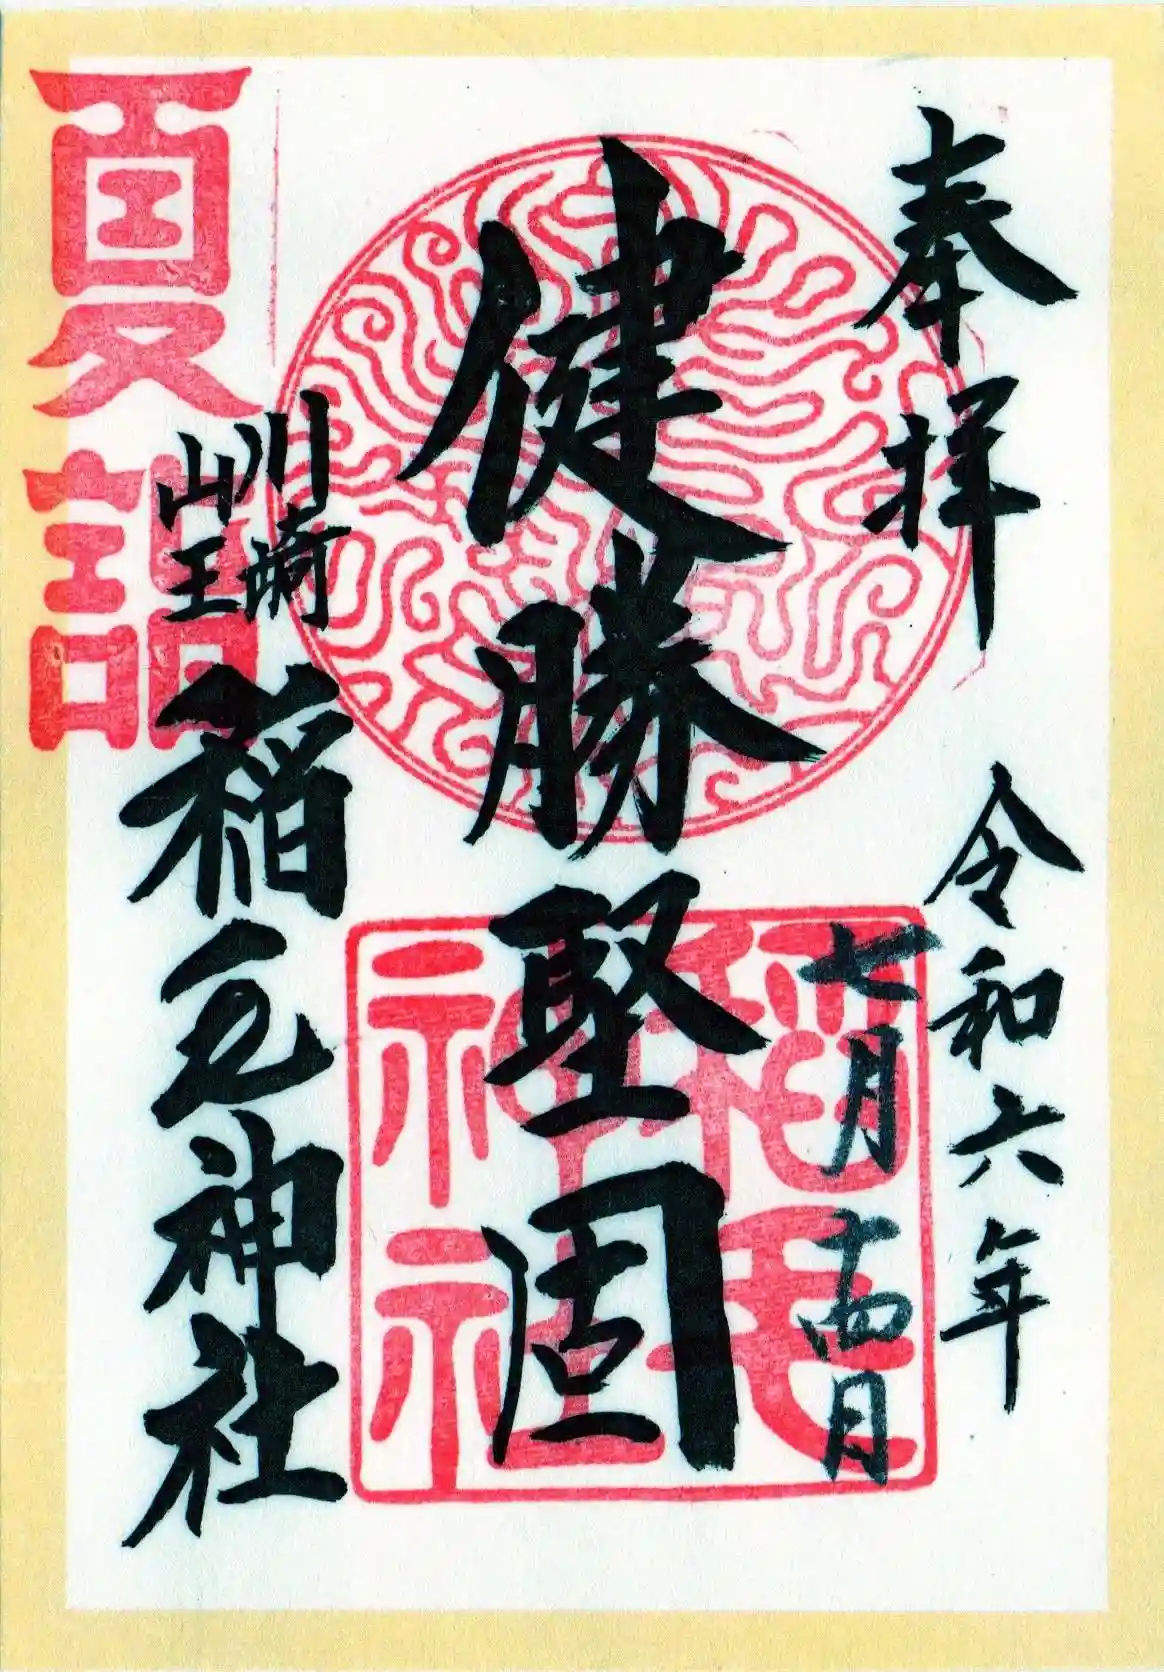 奉拝
令和六年
七月十四日
健勝堅固
川崎
山王
稲毛神社
夏詣
稲毛
神社